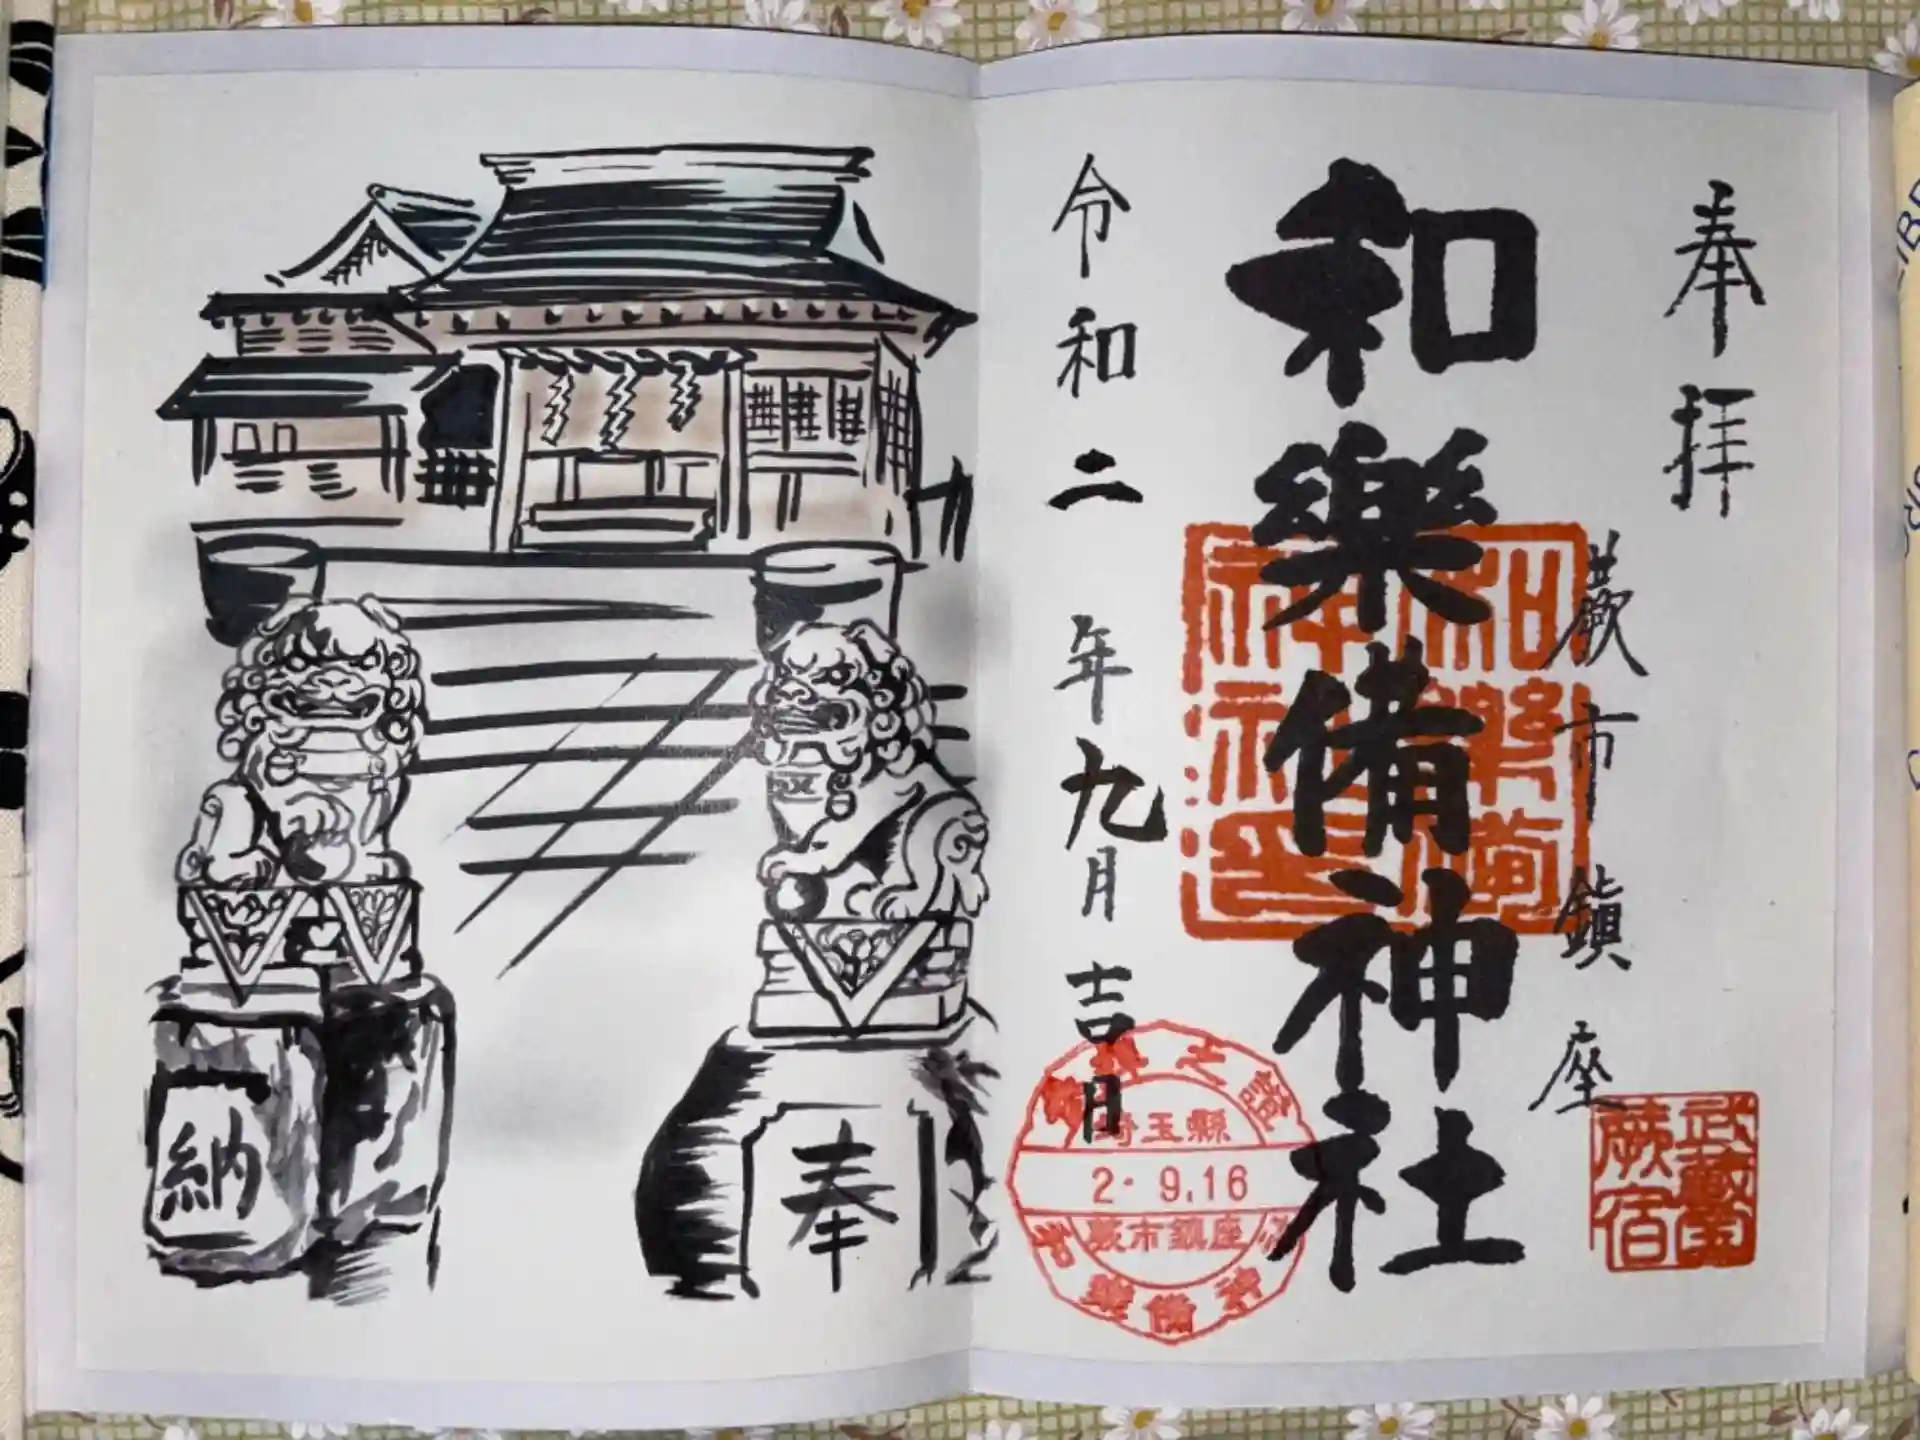 奉拝
蕨市鎮座
武蔵
蕨宿
和樂備神社
和樂備
神社印
令和二年九月吉日
埼玉縣
2.9.16
蕨市鎮座
和樂備神
奉
納